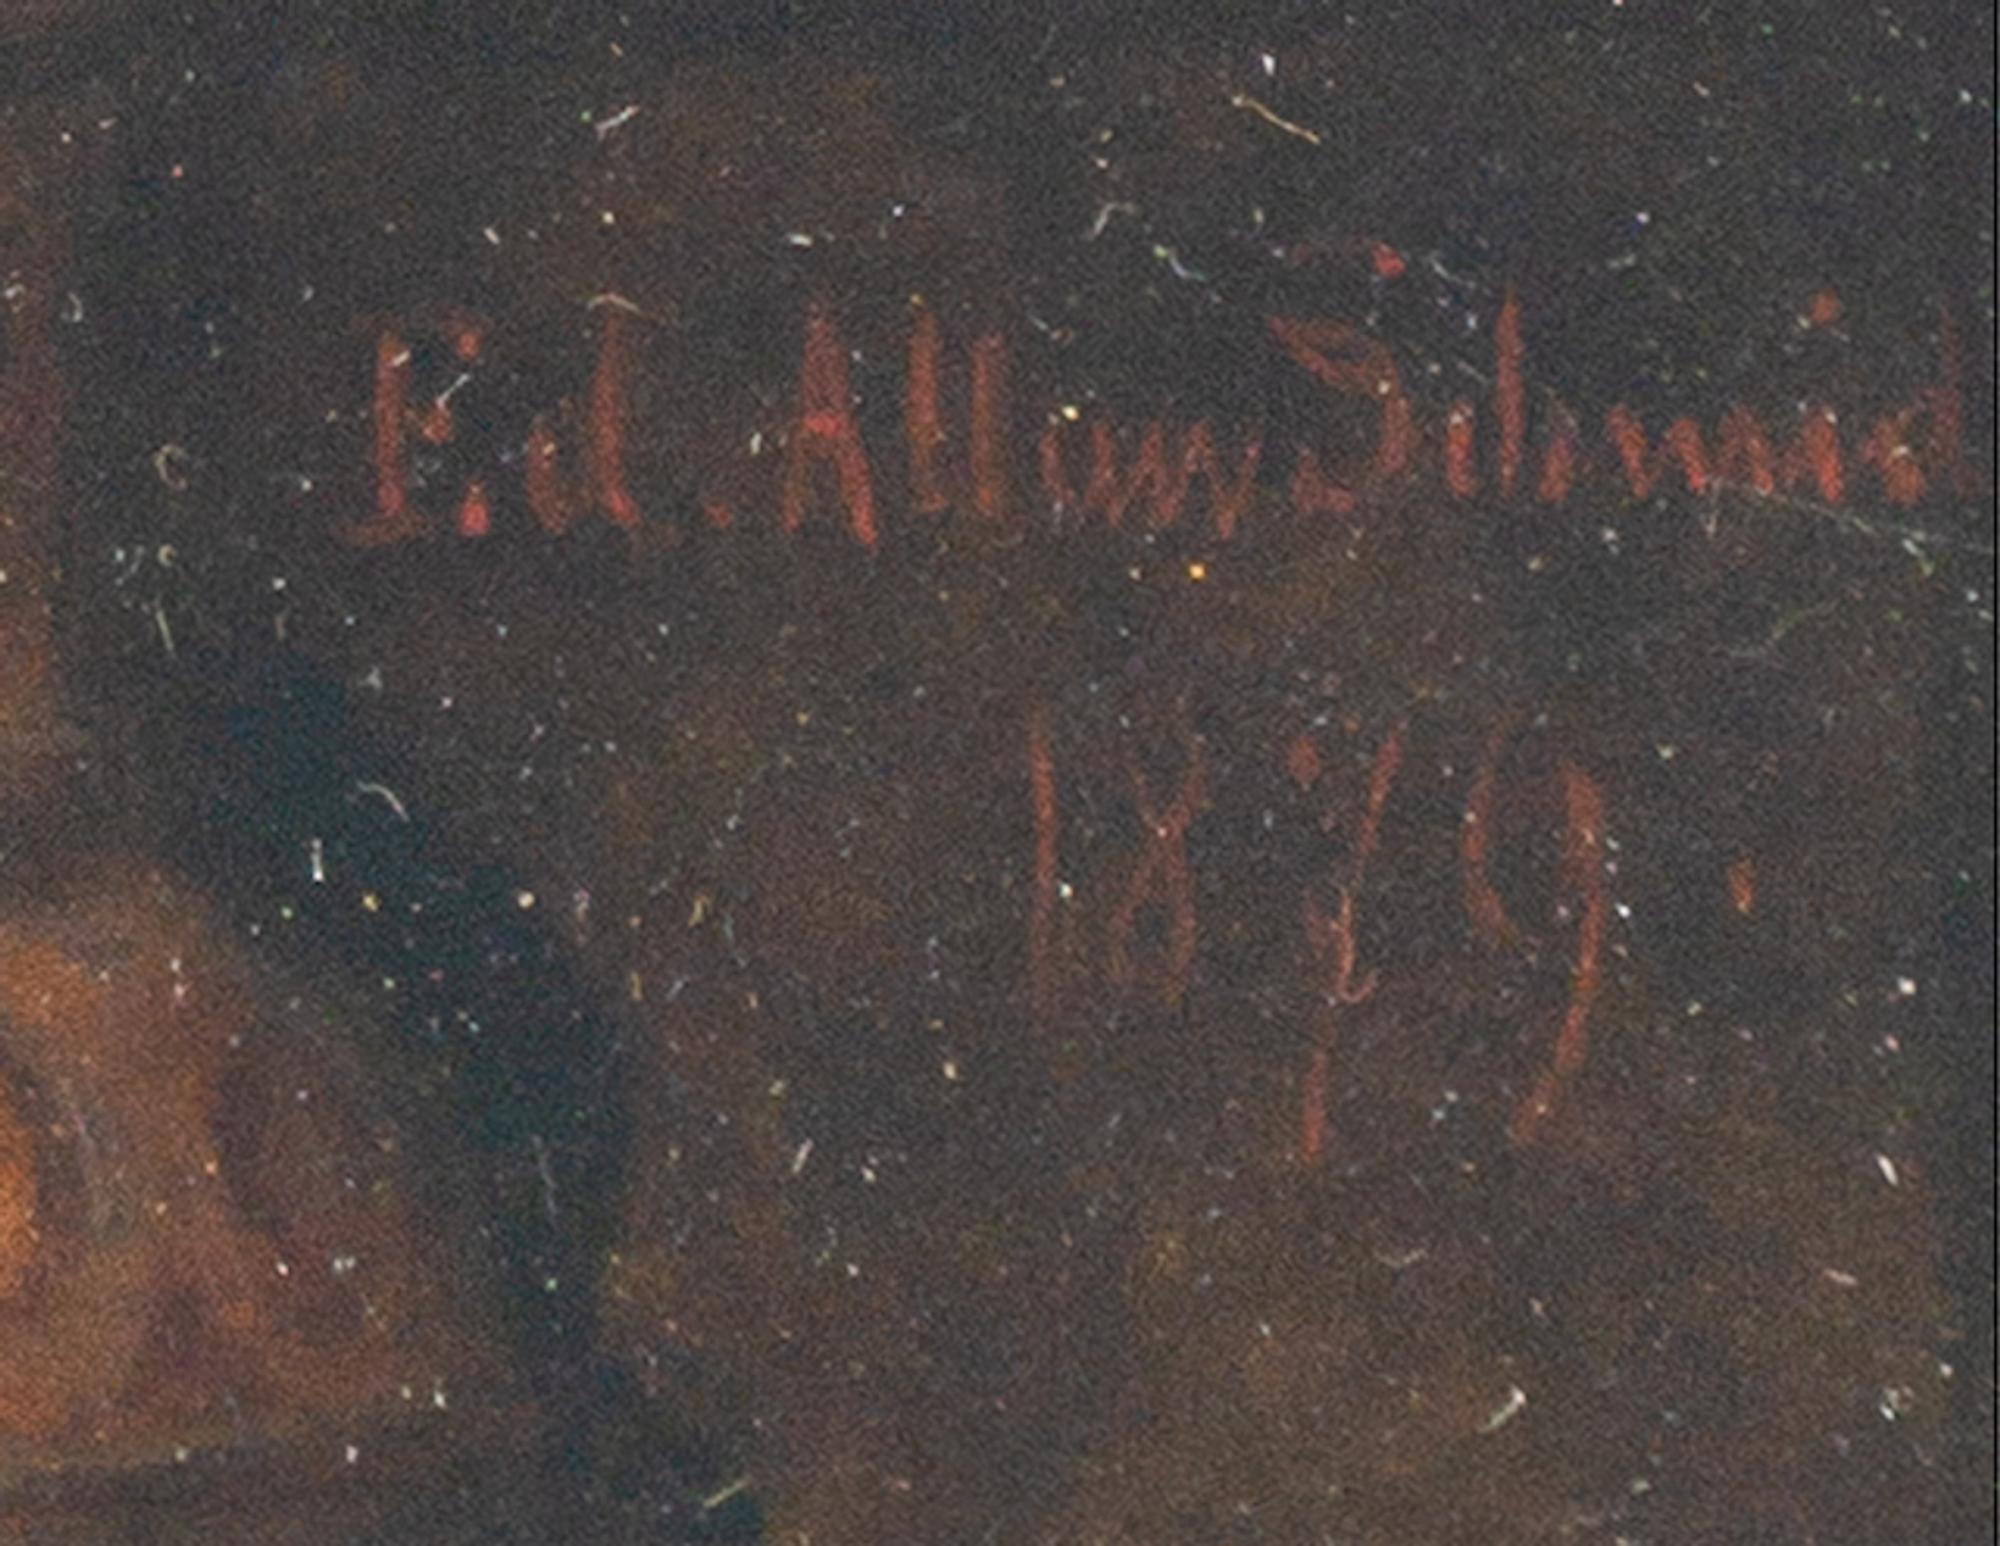 Ed. Allan Schmid
1879.